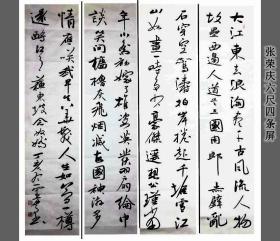 张荣庆六尺四条屏
大江東去浪淘尽千古風流人物
故壘西邊人道是三國周郎赤壁亂
石穿空驚濤拍岸捲起千堆雪江
山如畫一時多少豪傑遥想公瑾當
年小喬初嫁了雄姿英發羽扇綸巾
談笑間檣櫓灰飛煙滅故國神游多
情應笑我早生華髮人生如夢一樽
還酹江月 蘇東坡念奴嬌 丁亥